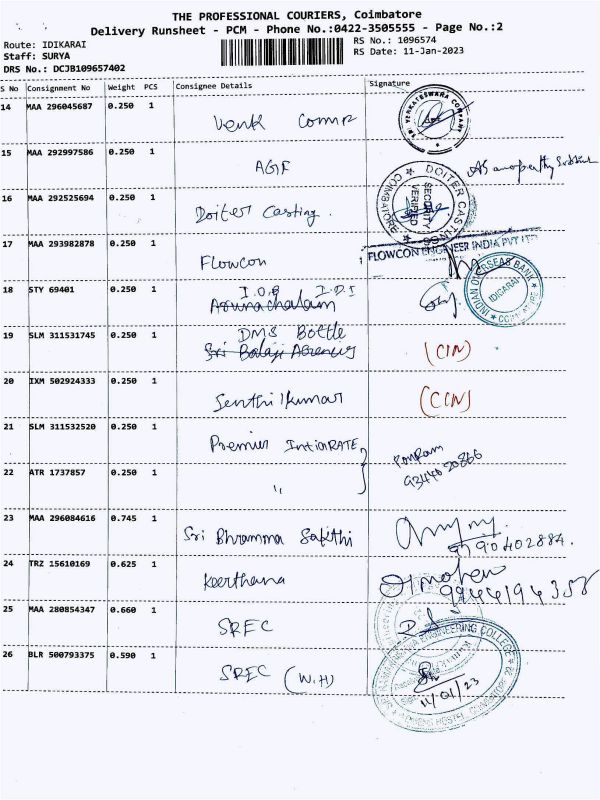 THE PROFESSIONAL COURIERS, Coimbatore
Delivery Runsheet - PCM - Phone No.:0422-3505555 - Page No.:2
Route: IDIKARAI
Staff: SURYA
DRS No.: DCJB109657402
RS No.: 1096574
RS Date: 11-Jan-2023
S No Consignment No Weight PCS Consignee Details Signature
14 MAA 296045687 0.250 1 Venk Comp
SRI VENKATESWARA COMPANY
15 MAA 292997586 0.250 1 AGF
16 MAA 292525694 0.250 1 Doiter Casting.
DOITER CASTINGS COIMBATORE SECURITY VERIFIED
17 MAA 293982878 0.250 1 Flowcon
FLOWCON ENGINEER INDIA PVT LTD
18 STY 69401 0.250 1 I.O.B I.D.I
Arunachalam
INDIAN OVERSEAS BANK IDIGARAI COIMBATORE
19 SLM 311531745 0.250 1 DMS Bottle
Sri Balaji Agencies
(CIN)
20 IXM 502924333 0.250 1 Senthilkumar (CCN)
21 SLM 311532520 0.250 1 Premier
22 ATR 1737857 0.250 1 "
Ponram
93448 20866
23 MAA 296084616 0.745 1 Sri Bhramma Sakthi
9790402884.
24 TRZ 15610169 0.625 1 Keerthana
9944194358
25 MAA 280854347 0.660 1 SREC
26 BLR 500793375 0.590 1 SREC (W.H)
RAMAKRISHNA ENGINEERING COLLEGE WOMENS HOSTEL, COIMBATORE
11/01/23